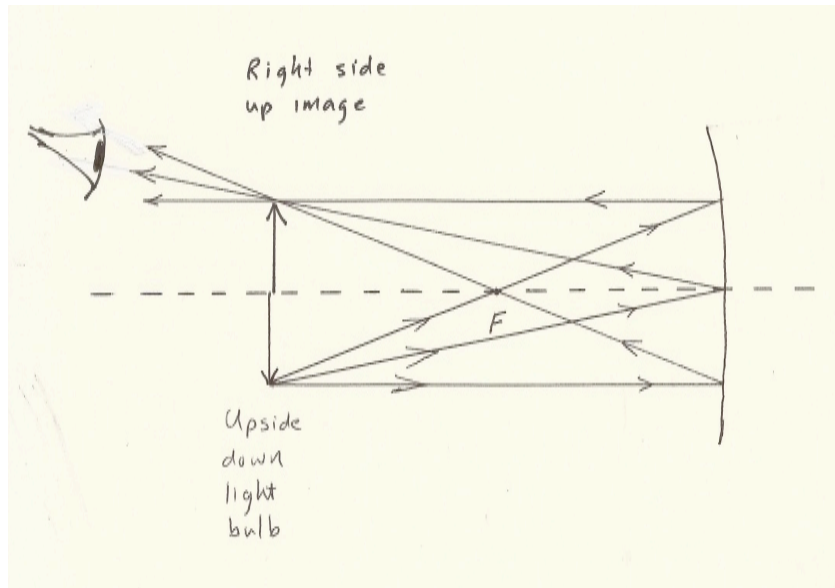 Right side
up image
F
Upside
down
light
bulb